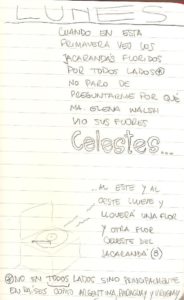 LUNES
CUANDO EN ESTA
PRIMAVERA VEO LOS
JACARANDÁS FLORIDOS
POR TODOS LADOS Ⓐ
NO PARO DE
PREGUNTARME POR QUÉ
MA. ELENA WALSH
VIO SUS FLORES
Celestes...
... AL ESTE Y AL
OESTE LLUEVE Y
LLOVERÁ UNA FLOR
Y OTRA FLOR
CELESTE DEL
JACARANDÁ Ⓑ
Ⓐ NO EN TODOS LADOS SINO PRINCIPALMENTE
EN PAÍSES COMO ARGENTINA, PARAGUAY Y URUGUAY